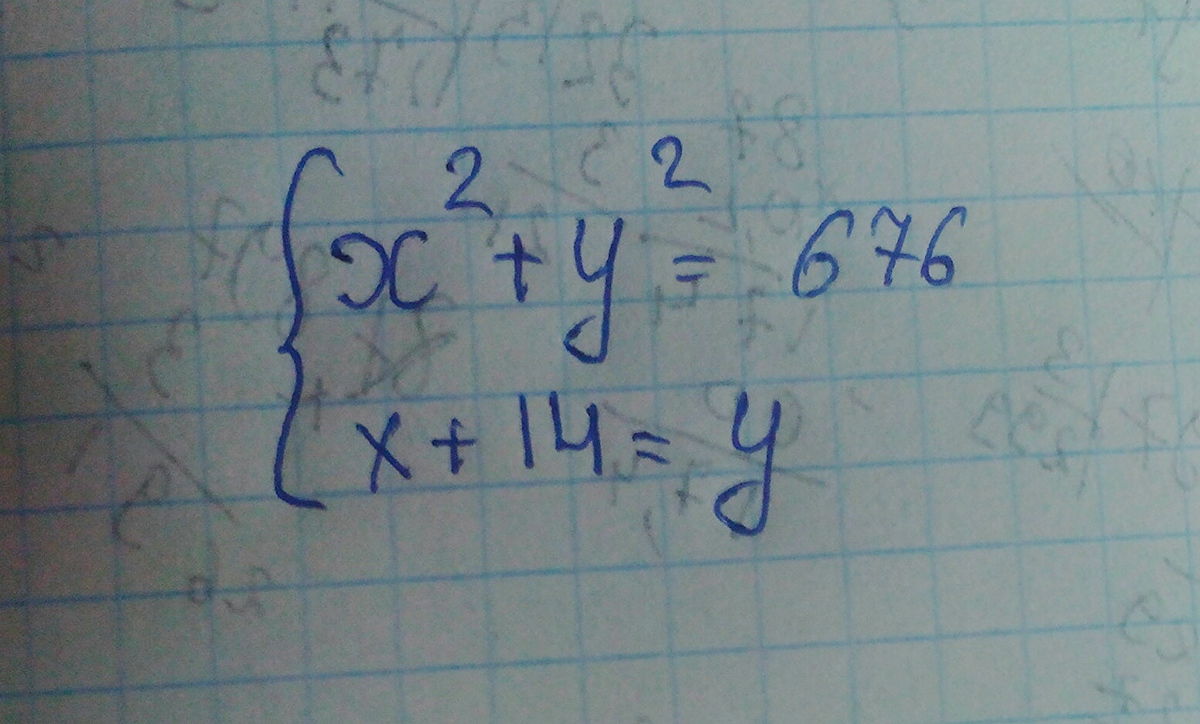 x² + y² = 676
x + 14 = y